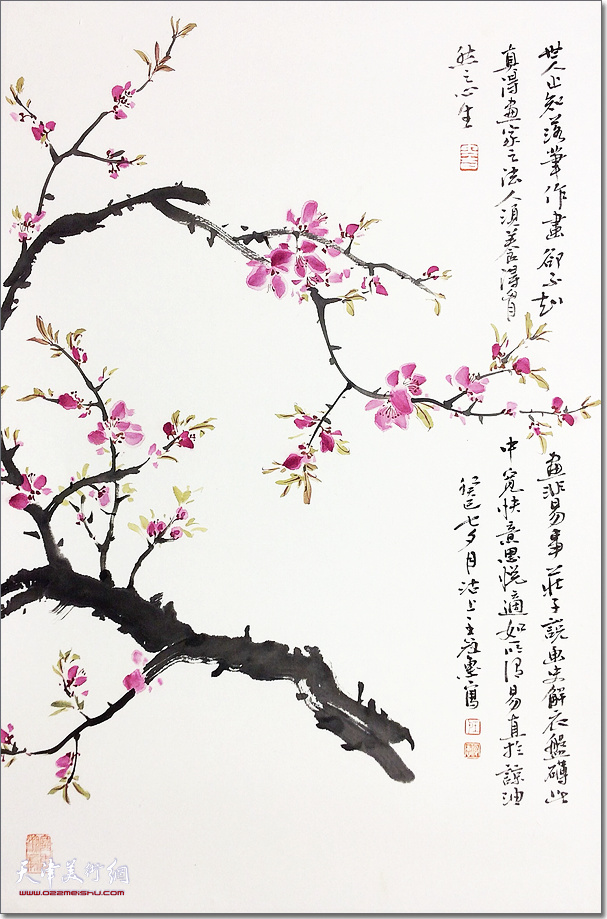 世人止知落筆作畫卻不知畫非易事莊子說畫史解衣盤礴此
真得畫家之法人須養得胸中寬快意思悅適如所謂易直於諒油
然之心生
癸巳七夕月沽上王惠寫
天津美術網
www.022meishu.com